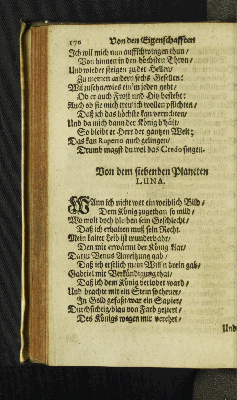 170 Von den Eigenschafften
Ich wil mich nun auffschwingen thun/
Von hinnen in den höchsten Thron/
Und wieder steigen zu der Hellen/
Zu meinen andern sechs Gesellen:
Wil zusehn/wies ein'm jeden geht/
Ob er auch Frost und Hitz besteht:
Auch ob sie mich treulich wollen pflichten/
Daß ich das höchste kan verrichten/
Und da mich dann der König b'hält/
So bleibt er Herr der gantzen Welt;
Das kan Ruperto auch gelingen/
Drumb magst du wol das Credo singen.
Von dem siebenden Planeten
LUNA.
Wann ich nicht wer ein weiblich Bild/
Dem König zugethan so mild/
Wo wolt doch bleiben sein Geschlecht/
Daß ich erhalten muß sein Recht.
Mein kalter Leib ist wunderbahr/
Den mit erwärmt der König klar/
Darzu Venus Anreitzung gab/
Daß ich erstlich mein Will'n drein gab/
Gabriel mit Verkündigung that/
Daß ich dem König verlobet ward/
Und brachte mir ein Stein so
In Gold gefast/war ein Saphir/
Durchsichtig/blau von Farb geziert/
Des Königs wegen mir verehrt/
Und